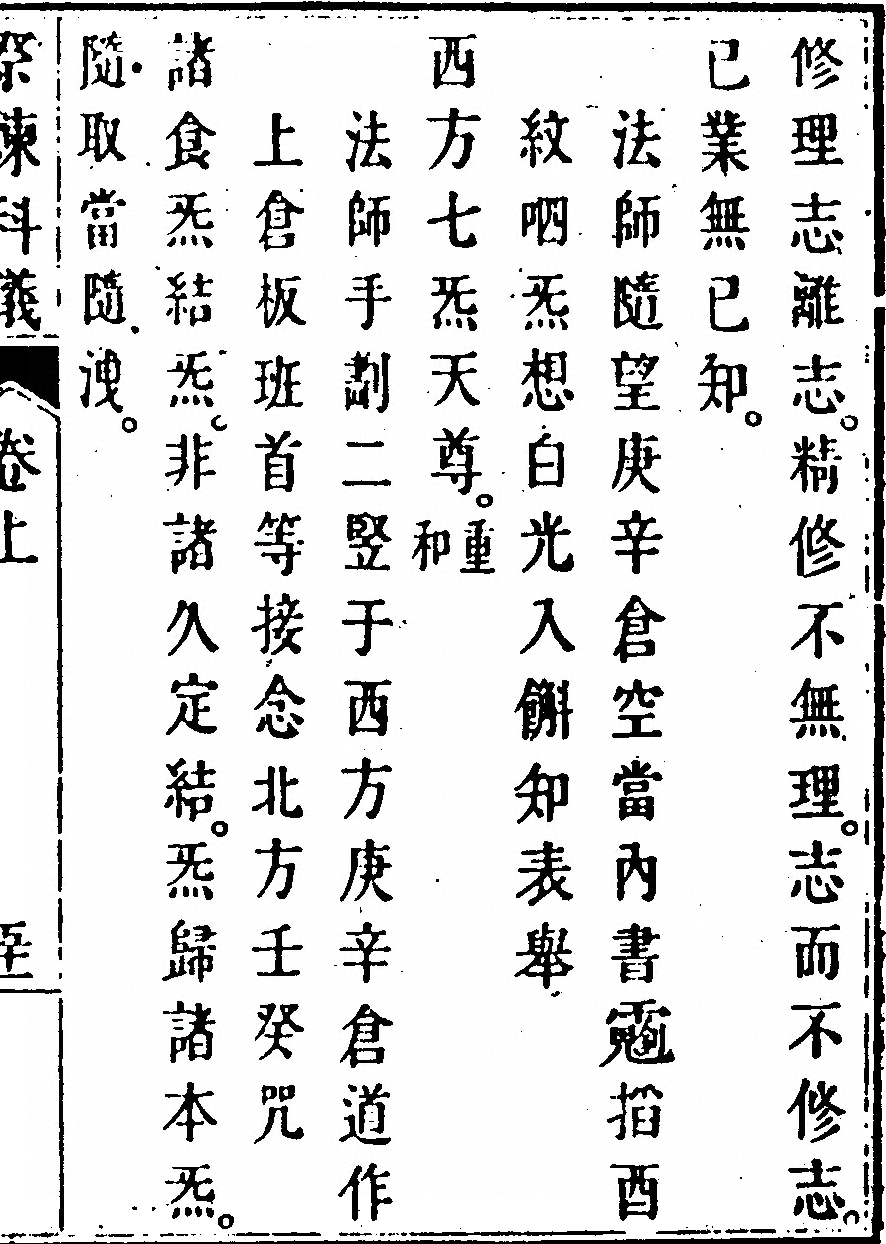 修理志離志。精修不無理。志而不修志。
已業無已知。
法師隨望庚辛倉空當內書掐酉
紋呬炁想白光入斛知表舉
西方七炁天尊。重和
法師手劃二竪于西方庚辛倉道作
上倉板班首等接念北方壬癸咒
諸食炁結炁。非諸久定結。炁歸諸本炁。
隨取當隨洩。
祭煉科儀 卷上